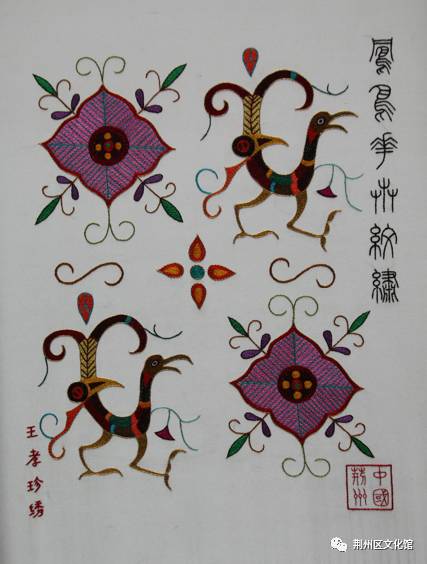 鳳鳥花卉紋繡
王孝珍绣
中國
荆州
荆州区文化馆